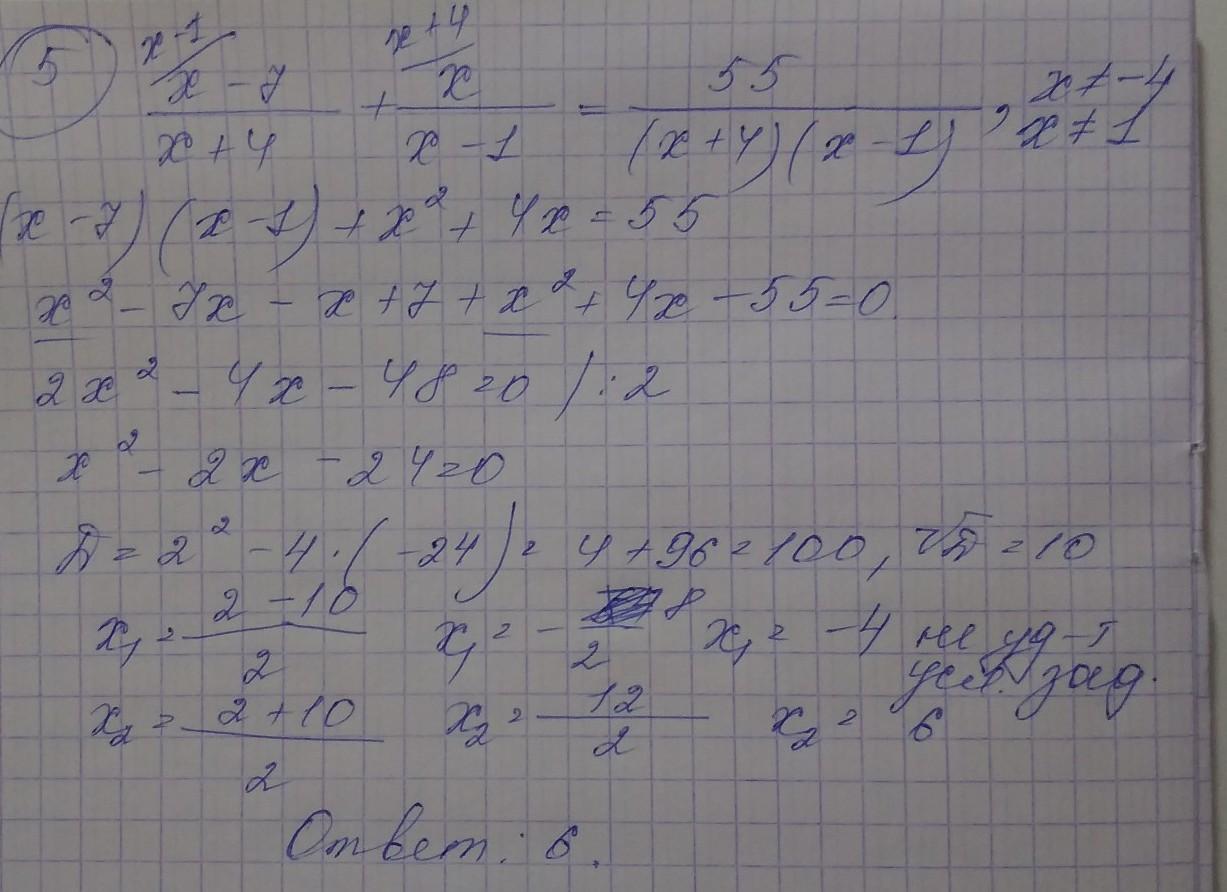 5 x-1/ x-7 / x+4 + x+4/ x / x-1 = 55 / (x+4)(x-1), x≠-4 x≠1
(x-7)(x-1)+x²+4x=55
x²-7x-x+7+x²+4x-55=0
2x²-4x-48=0 /:2
x²-2x-24=0
D=2²-4·(-24)=4+96=100, √D=10
x₁=(2-10)/2 x₁=-8/2 x₁=-4 не уд-т усл. зад.
x₂=(2+10)/2 x₂=12/2 x₂=6
Ответ: 6.